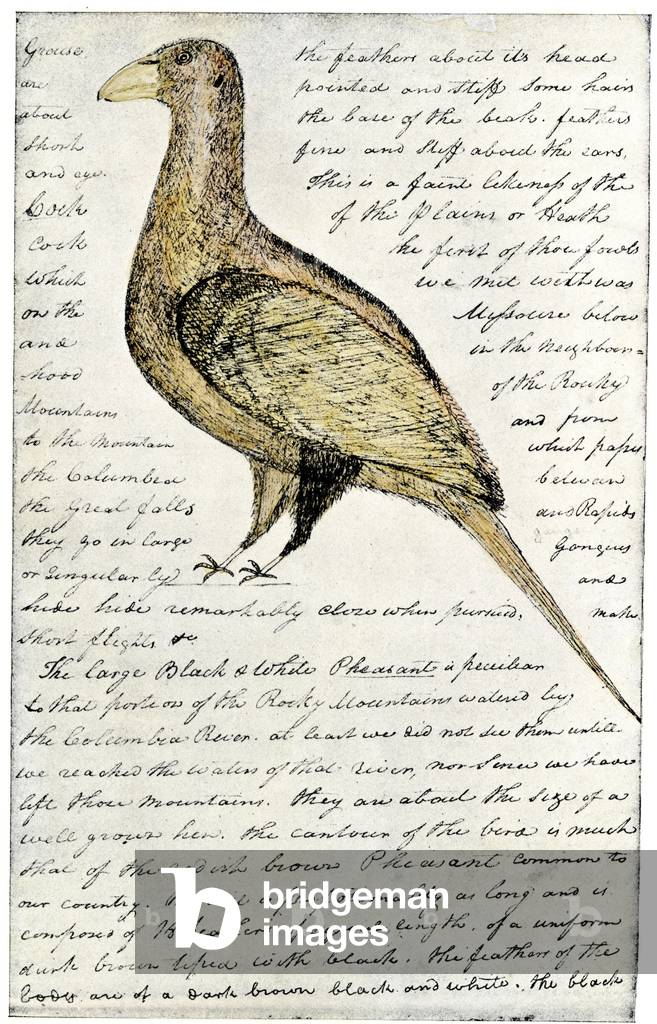 Grouse the feathers about its head
are pointed and stiff some hairs
about the base of the beak. feathers
short fine and stiff about the ears,
and eye. This is a faint likeness of the
Cock of the Plains or Heath
cock the first of those fowls
which we met with was
on the Missouri below
and in the neighbour=
hood of the Rocky
Mountains and from
to the mountain which pass
the Columbia between
the Great falls and Rapids
they go in large Gangues
or singularly and
hide hide remarkably close when pursued, make
short flights &c
The large Black & White Pheasant is peculiar
to that portion of the Rocky Mountains watered by
the Columbia River. at least we did not see them untill
we reached the waters of that river, nor since we have
left those mountains. they are about the size of a
well grown hen. the contour of the bird is much
that of the redish brown Pheasant common to
our country. as long and is
composed of length, of a uniform
dark brown tiped with black. the feathers of the
body are of a dark brown black and white. the black
bridgeman
images